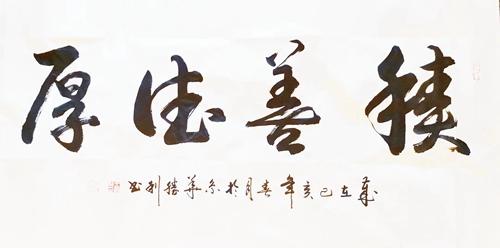 積善德厚
歲在己亥年春月於京華勝利書